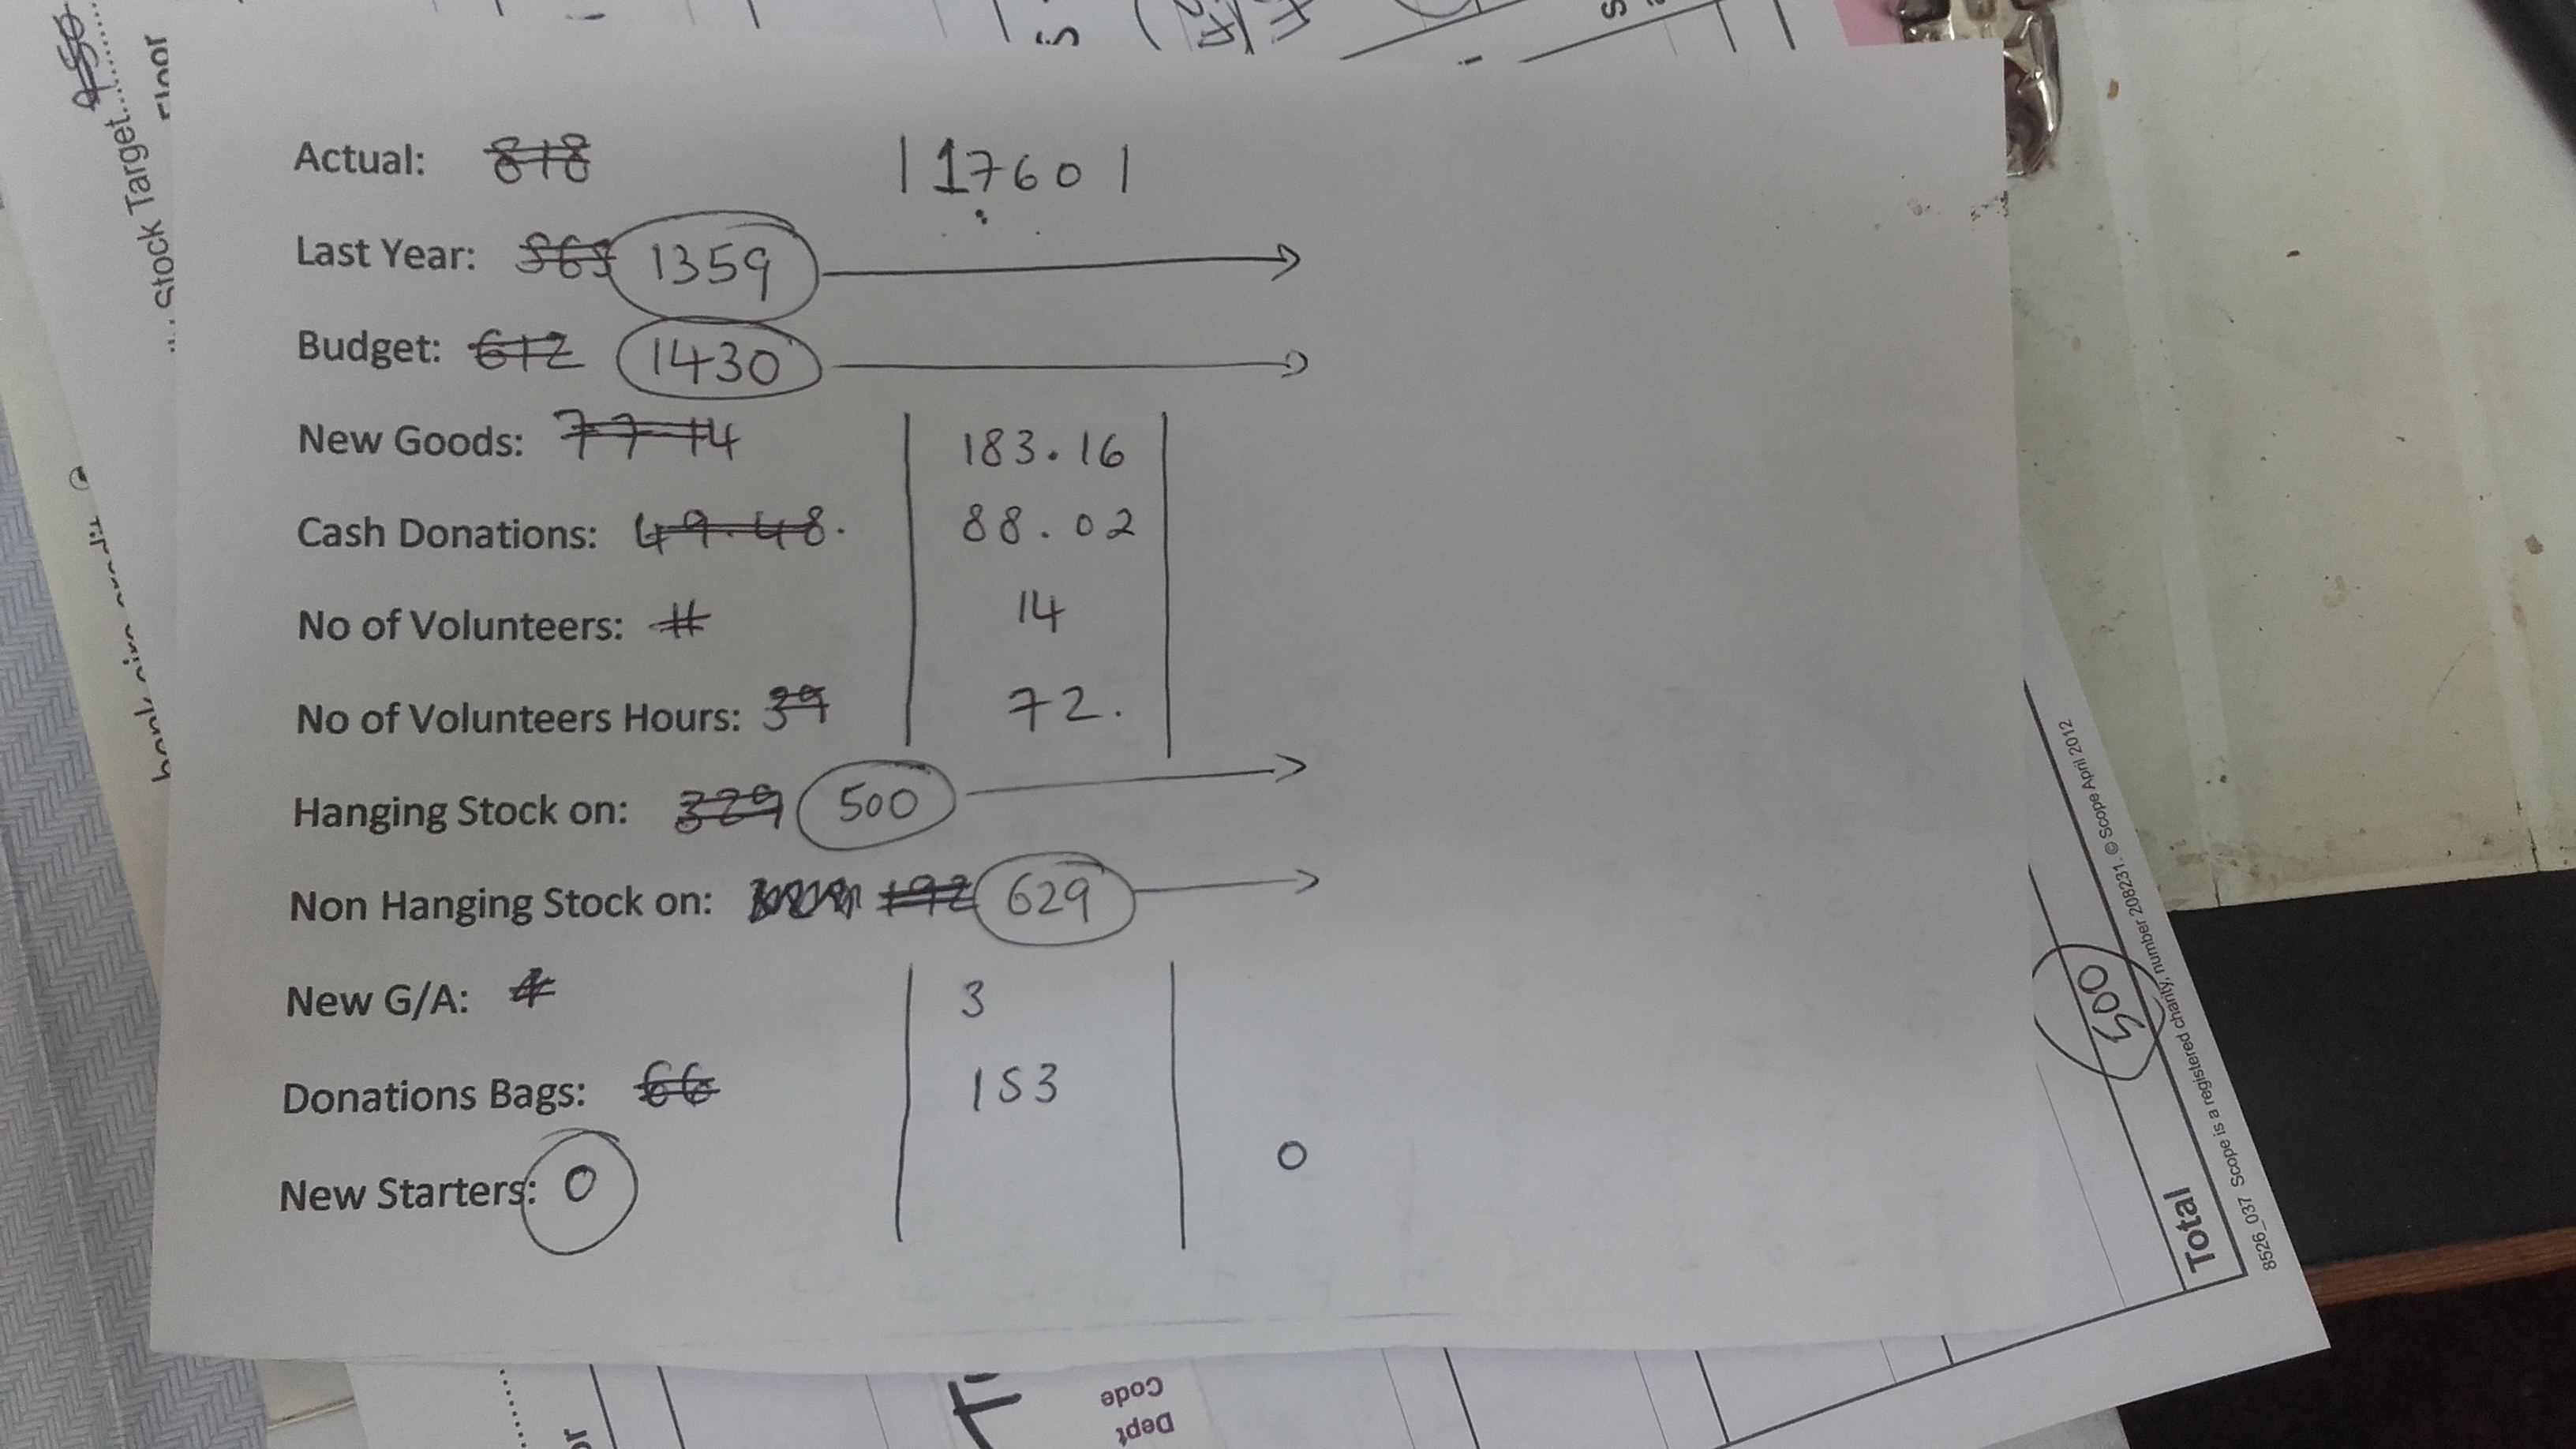 Actual: 818 | 1760 |
Last Year: 1359
Budget: 612 1430
New Goods: 77 14 183.16
Cash Donations: 49.48. 88.02
No of Volunteers: 14
No of Volunteers Hours: 39 72.
Hanging Stock on: 329 500
Non Hanging Stock on: 192 629
New G/A: 4 3
Donations Bags: 66 153
New Starters: 0 0
Stock Target
Floor
500
Total
8526_037 Scope is a registered charity, number 208231. © Scope April 2012
Dept
Code